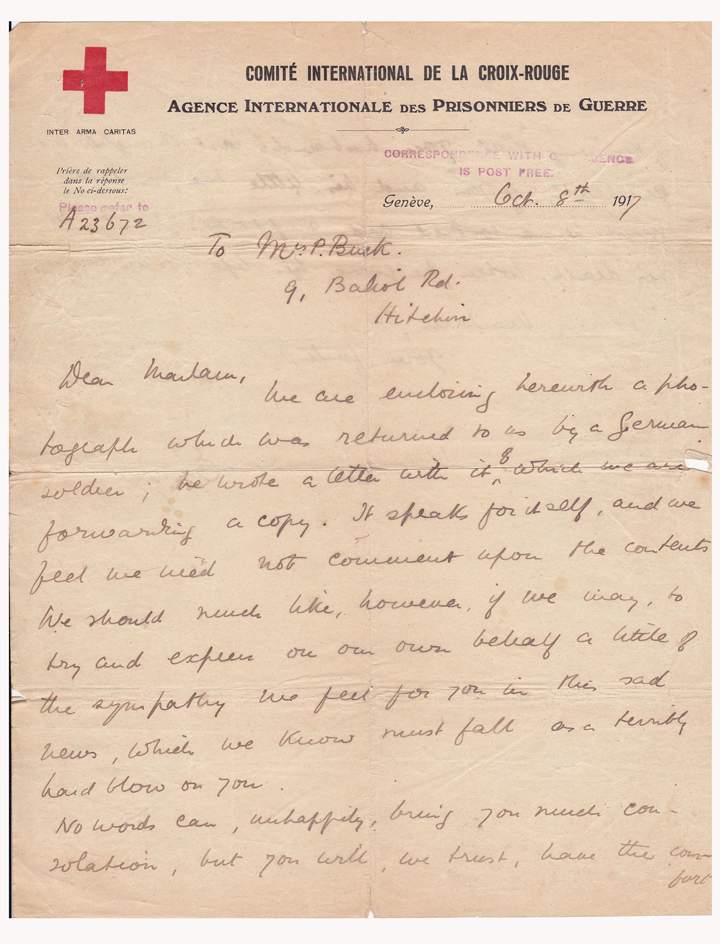 COMITÉ INTERNATIONAL DE LA CROIX-ROUGE
AGENCE INTERNATIONALE DES PRISONNIERS DE GUERRE
INTER ARMA CARITAS
CORRESPONDENCE WITH
IS POST FREE.
Prière de rappeler
dans la réponse
le No ci-dessous:
Please refer to
A 23672
Genève, Oct. 8th 1917
To Mrs P. Buck.
9, Baliol Rd.
Hitchin
Dear Madam,
We are enclosing herewith a pho-
tograph which was returned to us by a German
soldier; he wrote a letter with it, of which we are
forwarding a copy. It speaks for itself, and we
feel we need not comment upon the contents
We should much like, however, if we may, to
try and express on our own behalf a little of
the sympathy we feel for you in this sad
news, which we know must fall as a terribly
hard blow on you.
No words can, unhappily, bring you much con-
solation, but you will, we trust, have the com
fort